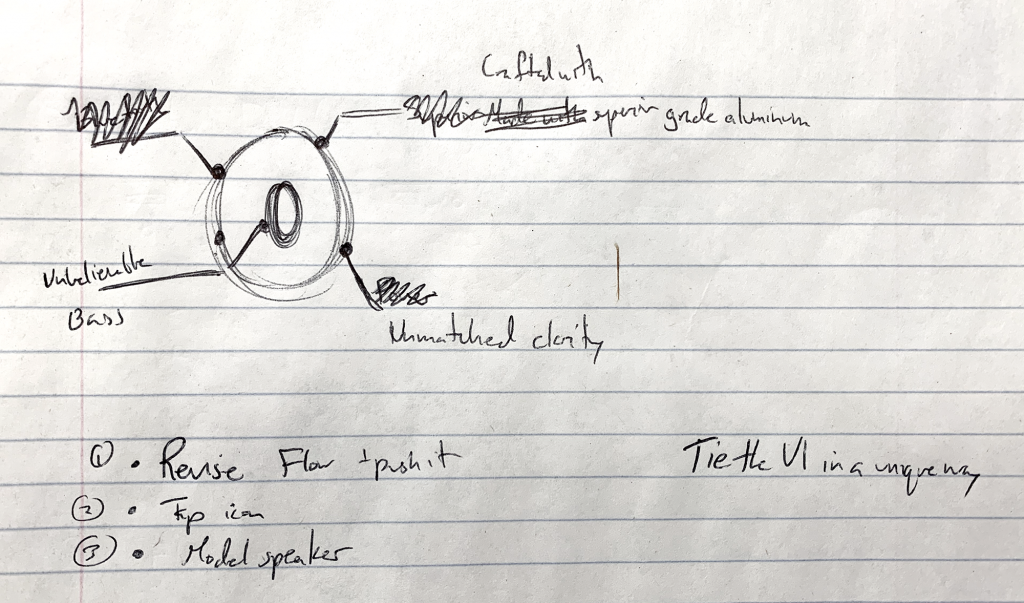 Crafted with
superior grade aluminum
Unbelievable
Bass
Unmatched clarity
① • Revise Flow + push it
Tie the UI in a unique way
② • icon
③ • Model speaker